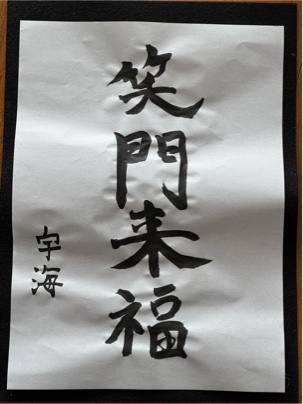 笑門来福
宇海